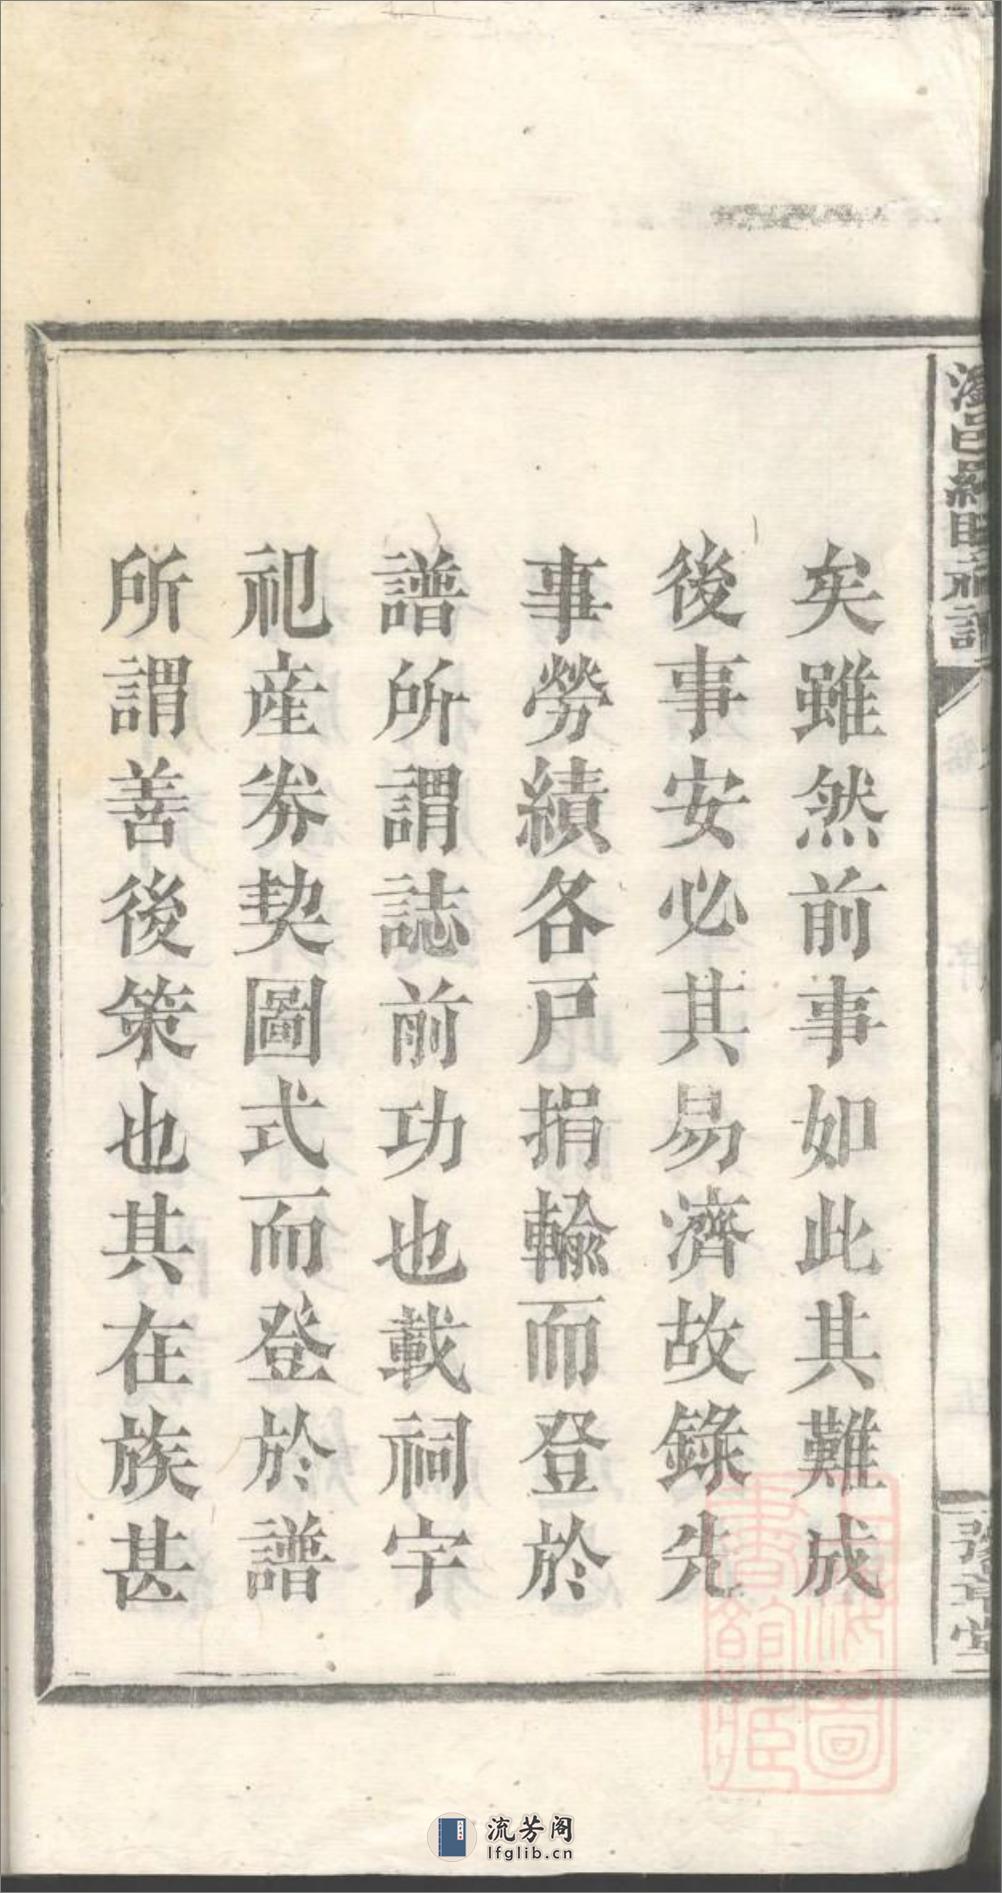 矣雖然前事如此其難成
後事安必其易濟故錄先
事勞績各戶捐輸而登於
譜所謂誌前功也載祠宇
祀産券契圖式而登於譜
所謂善後策也其在族甚
豫章堂
上海圖書館藏
流芳阁
lfglib.cn